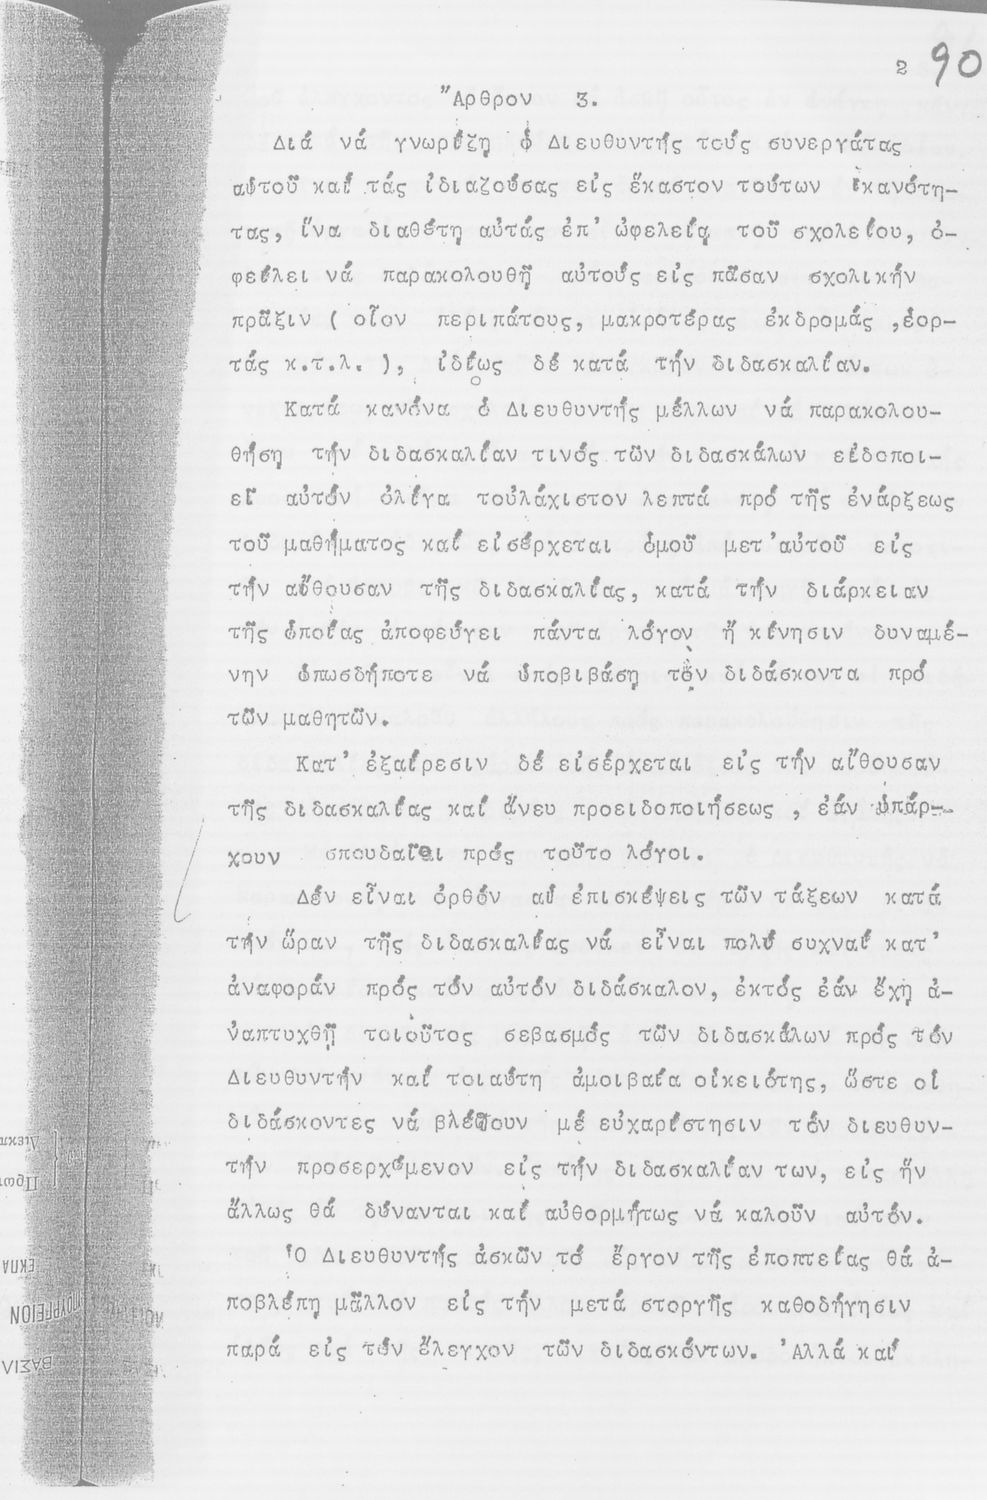 2 90
Ἄρθρον 3.
Διά νά γνωρίζῃ ὁ Διευθυντής τούς συνεργάτας
αὐτοῦ καί τάς ἰδιαζούσας εἰς ἕκαστον τούτων ἱκανότη-
τας, ἵνα διαθέτῃ αὐτάς ἐπ' ὠφελείᾳ τοῦ σχολείου, ὀ-
φείλει νά παρακολουθῇ αὐτούς εἰς πᾶσαν σχολικήν
πρᾶξιν ( οἷον περιπάτους, μακροτέρας ἐκδρομάς ,ἑορ-
τάς κ.τ.λ. ), ἰδίως δέ κατά τήν διδασκαλίαν.
Κατά κανόνα ὁ Διευθυντής μέλλων νά παρακολου-
θήσῃ τήν διδασκαλίαν τινός τῶν διδασκάλων εἰδοποι-
εῖ αὐτόν ὀλίγα τοὐλάχιστον λεπτά πρό τῆς ἐνάρξεως
τοῦ μαθήματος καί εἰσέρχεται ὁμοῦ μετ'αὐτοῦ εἰς
τήν αἴθουσαν τῆς διδασκαλίας, κατά τήν διάρκειαν
τῆς ὁποίας ἀποφεύγει πάντα λόγον ἤ κίνησιν δυναμέ-
νην ὁπωσδήποτε νά ὑποβιβάσῃ τόν διδάσκοντα πρό
τῶν μαθητῶν.
Κατ' ἐξαίρεσιν δέ εἰσέρχεται εἰς τήν αἴθουσαν
τῆς διδασκαλίας καί ἄνευ προειδοποιήσεως , ἐάν ὑπάρ-
χουν σπουδαῖοι πρός τοῦτο λόγοι.
Δέν εἶναι ὀρθόν αἱ ἐπισκέψεις τῶν τάξεων κατά
τήν ὥραν τῆς διδασκαλίας νά εἶναι πολύ συχναί κατ'
ἀναφοράν πρός τόν αὐτόν διδάσκαλον, ἐκτός ἐάν ἔχῃ ἀ-
ναπτυχθῇ τοιοῦτος σεβασμός τῶν διδασκάλων πρός τόν
Διευθυντήν καί τοιαύτη ἀμοιβαία οἰκειότης, ὥστε οἱ
διδάσκοντες νά βλέπουν μέ εὐχαρίστησιν τόν διευθυν-
τήν προσερχόμενον εἰς τήν διδασκαλίαν των, εἰς ἥν
ἄλλως θά δύνανται καί αὐθορμήτως νά καλοῦν αὐτόν.
Ὁ Διευθυντής ἀσκῶν τό ἔργον τῆς ἐποπτείας θά ἀ-
ποβλέπῃ μᾶλλον εἰς τήν μετά στοργῆς καθοδήγησιν
παρά εἰς τόν ἔλεγχον τῶν διδασκόντων. Ἀλλά καί
ΕΚΠΑ
ΥΠΟΥΡΓΕΙΟΝ
ΒΑΣΙΛ